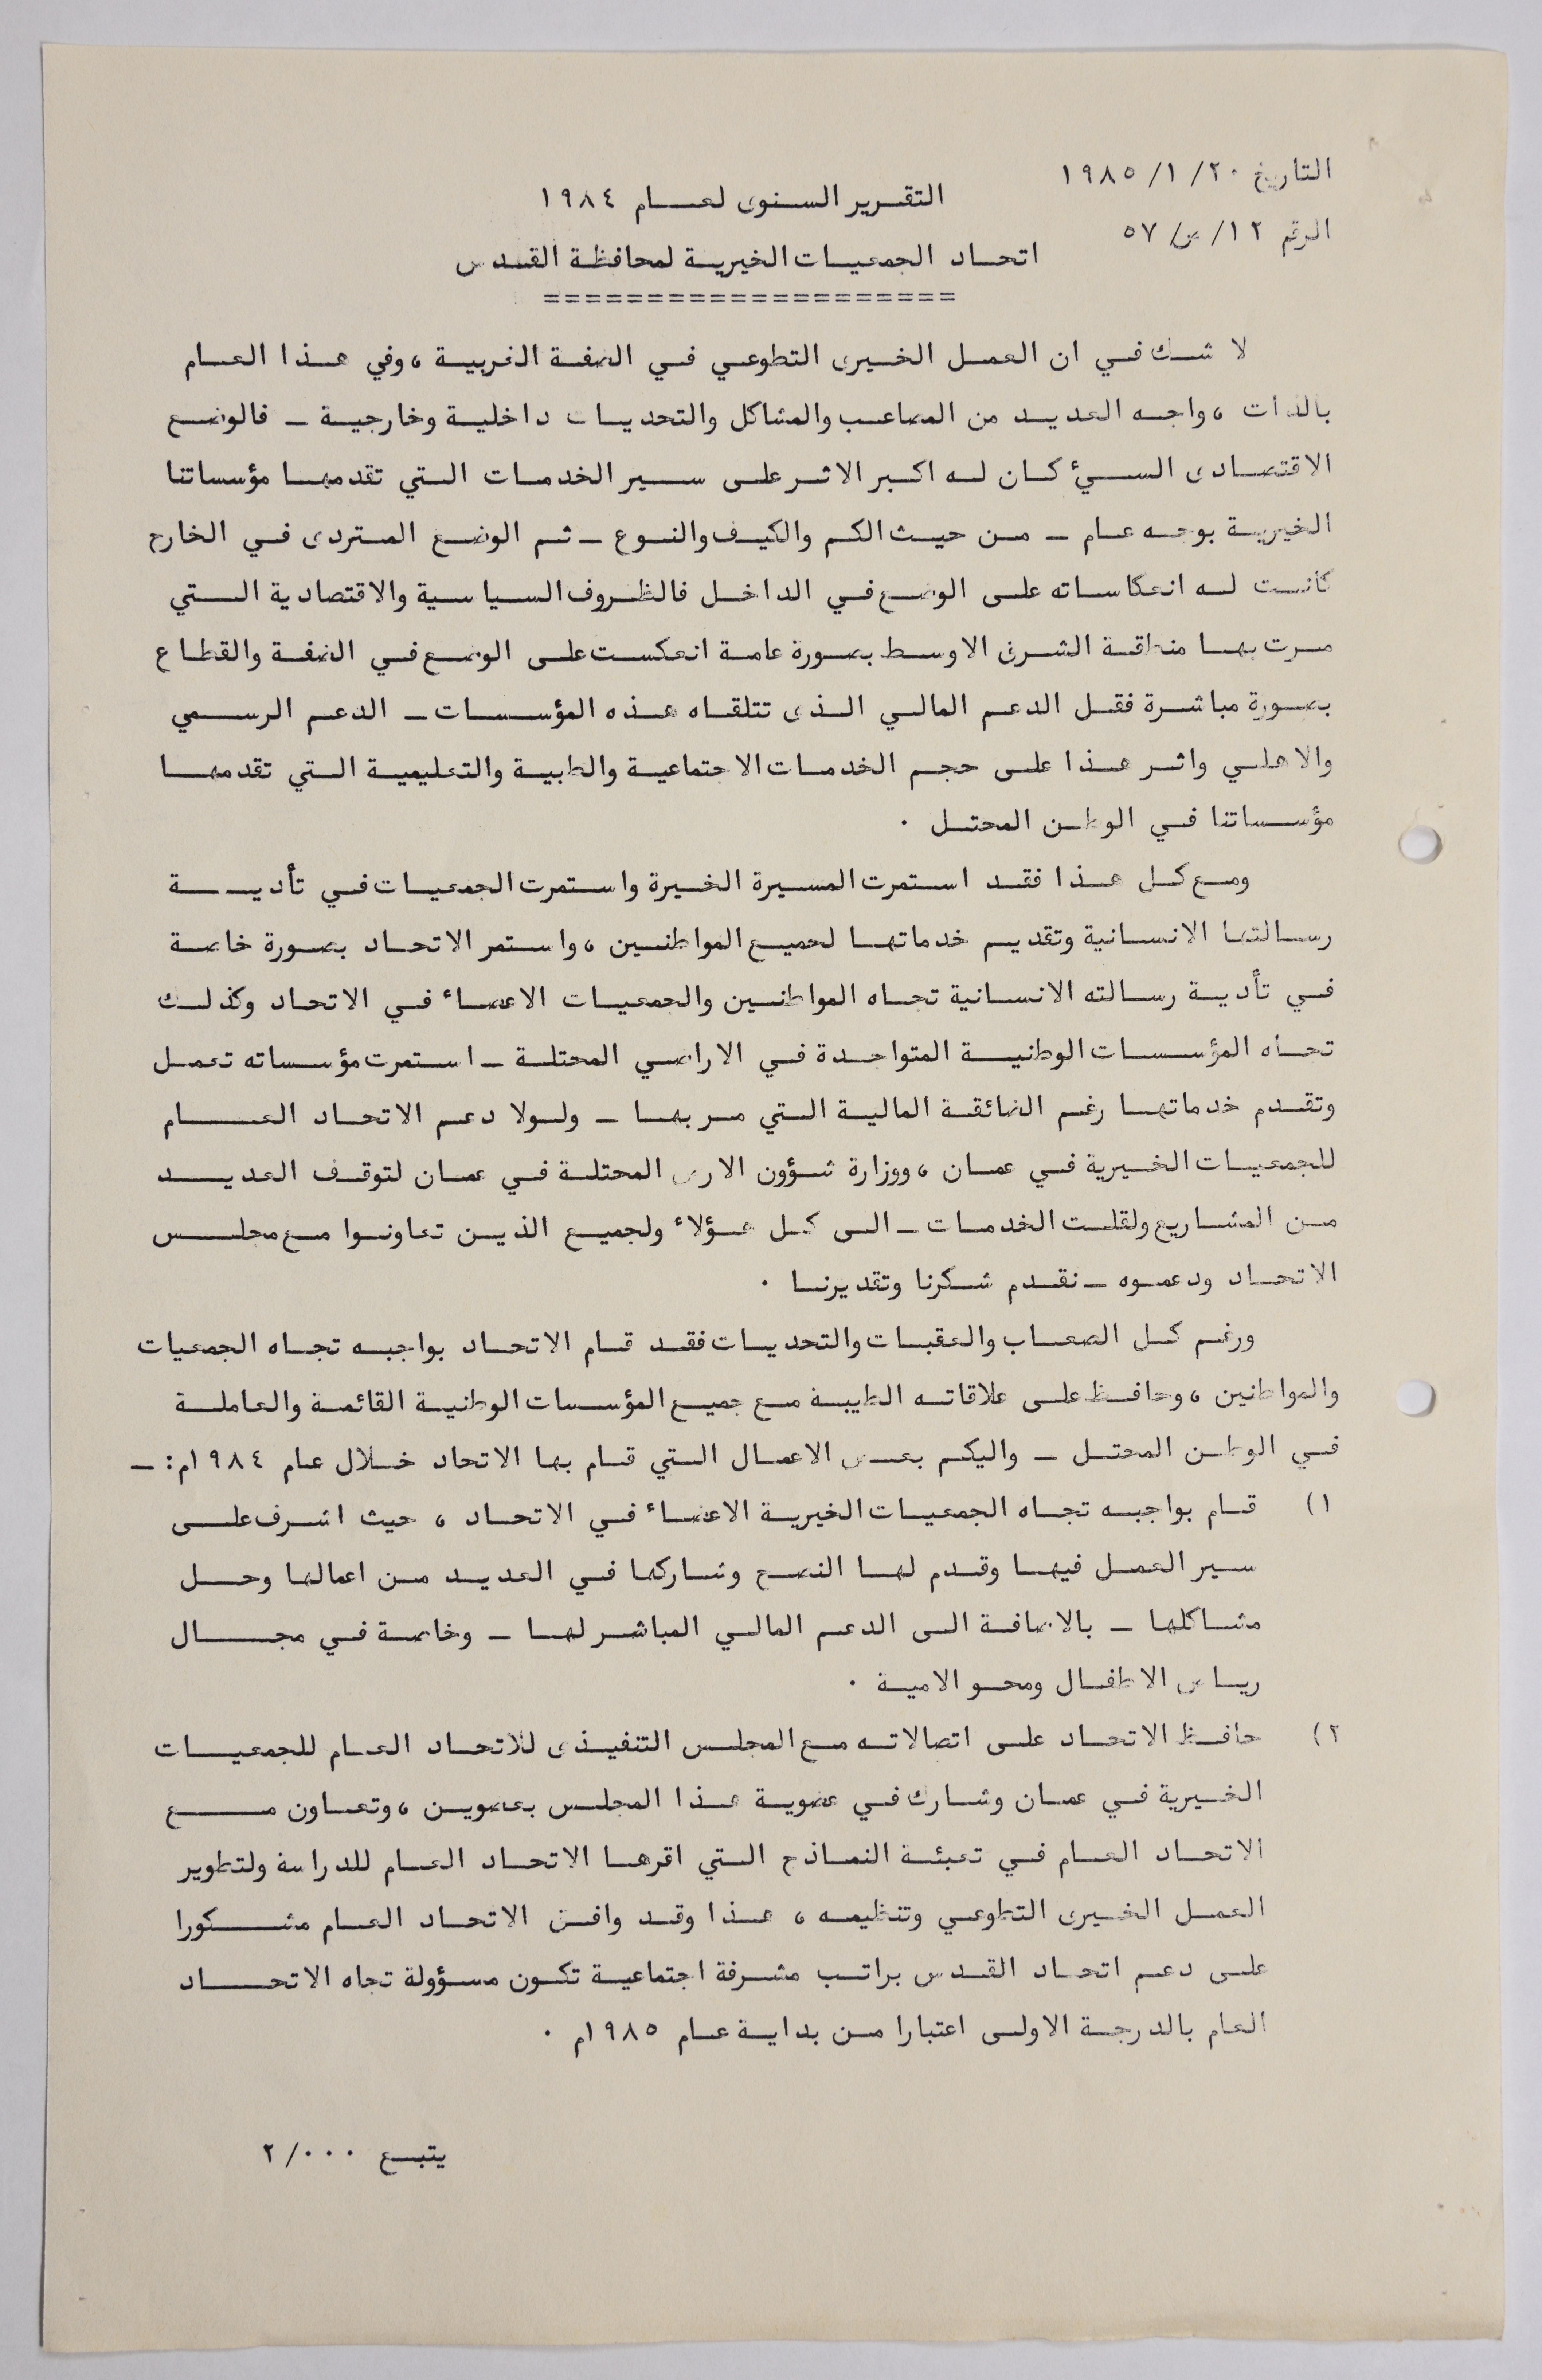 التاريخ ٢٠/ ١/ ١٩٨٥
الرقم ١٢/ س/ ٥٧
التقرير السنوى لعام ١٩٨٤
اتحاد الجمعيات الخيرية لمحافظة القدس
=====================
لا شك في ان العمل الخيرى التطوعي في الضفة الغربية ، وفي هذا العام
بالذات ، واجه العديد من المصاعب والمشاكل والتحديات داخلية وخارجية ـ فالوضع
الاقتصادى السيئ كان له اكبر الاثر على سير الخدمات التي تقدمها مؤسساتنا
الخيرية بوجه عام ـ من حيث الكم والكيف والنوع ـ ثم الوضع المتردى في الخارج
كانت له انعكاساته على الوضع في الداخل فالظروف السياسية والاقتصادية التي
مرت بها منطقة الشرق الاوسط بصورة عامة انعكست على الوضع في الضفة والقطاع
بصورة مباشرة فقل الدعم المالي الذى تتلقاه هذه المؤسسات ـ الدعم الرسمي
والاهلي واثر هذا على حجم الخدمات الاجتماعية والطبية والتعليمية التي تقدمها
مؤسساتنا في الوطن المحتل .
ومع كل هذا فقد استمرت المسيرة الخيرة واستمرت الجمعيات في تأدية
رسالتها الانسانية وتقديم خدماتها لجميع المواطنين ، واستمر الاتحاد بصورة خاصة
في تأدية رسالته الانسانية تجاه المواطنين والجمعيات الاعضاء في الاتحاد وكذلك
تجاه المؤسسات الوطنية المتواجدة في الاراضي المحتلة ـ استمرت مؤسساته تعمل
وتقدم خدماتها رغم الضائقة المالية التي مر بها ـ ولولا دعم الاتحاد العام
للجمعيات الخيرية في عمان ، ووزارة شؤون الارض المحتلة في عمان لتوقف العديد
من المشاريع ولقلت الخدمات ـ الى كل هؤلاء ولجميع الذين تعاونوا مع مجلس
الاتحاد ودعموه ـ نقدم شكرنا وتقديرنا .
ورغم كل الصعاب والعقبات والتحديات فقد قام الاتحاد بواجبه تجاه الجمعيات
والمواطنين ، وحافظ على علاقاته الطيبة مع جميع المؤسسات الوطنية القائمة والعاملة
في الوطن المحتل ـ واليكم بعض الاعمال التي قام بها الاتحاد خلال عام ١٩٨٤م: ـ
١) قام بواجبه تجاه الجمعيات الخيرية الاعضاء في الاتحاد ، حيث اشرف على
سير العمل فيها وقدم لها النصح وشاركها في العديد من اعمالها وحل
مشاكلها ـ بالاضافة الى الدعم المالي المباشر لها ـ وخاصة في مجال
رياض الاطفال ومحو الامية .
٢) حافظ الاتحاد على اتصالاته مع المجلس التنفيذى للاتحاد العام للجمعيات
الخيرية في عمان وشارك في عضوية هذا المجلس بعضوين ، وتعاون مع
الاتحاد العام في تعبئة النماذج التي اقرها الاتحاد العام للدراسة ولتطوير
العمل الخيرى التطوعي وتنظيمه ، هذا وقد وافق الاتحاد العام مشكورا
على دعم اتحاد القدس براتب مشرفة اجتماعية تكون مسؤولة تجاه الاتحاد
العام بالدرجة الاولى اعتبارا من بداية عام ١٩٨٥م .
يتبع ٠٠٠/ ٢